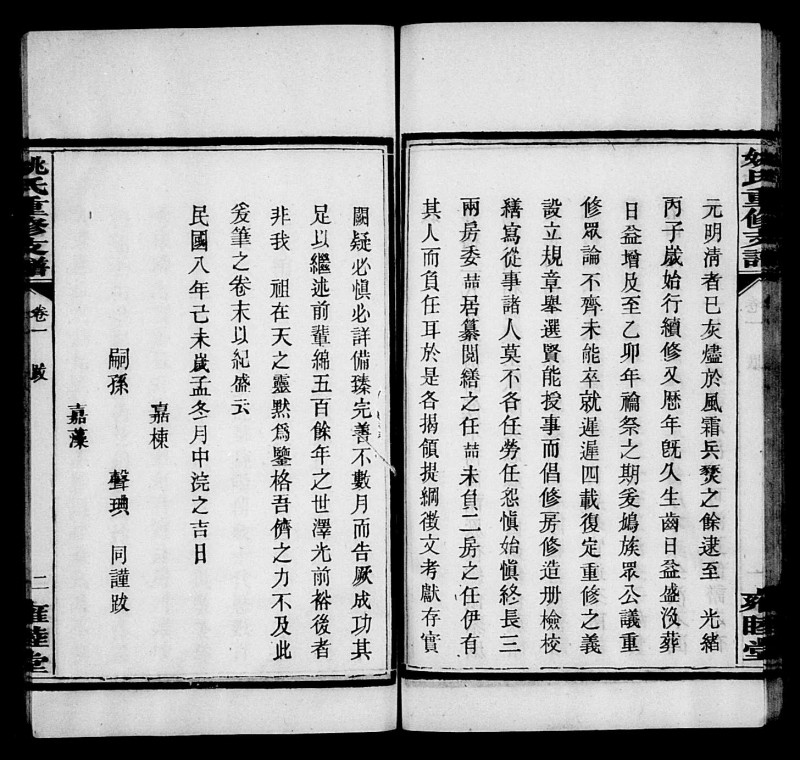 姚氏重修支譜
元明清者已灰燼於風霜兵燹之餘逮至 光緒
丙子歲始行續修又歷年旣久生齒日益盛沒葬
日益增及至乙卯年禴祭之期爰鳩族眾公議重
修眾論不齊未能卒就遲遲四載復定重修之義
設立規章舉選賢能授事而倡修房修造册檢校
繕寫從事諸人莫不各任勞任怨愼始愼終長三
兩房委喆居纂閱繕之任喆未負二房之任伊有
其人而負任耳於是各揭領提綱徵文考獻存實
雍睦堂
闕疑必愼必詳備臻完善不數月而告厥成功其
足以繼述前輩綿五百餘年之世澤光前裕後者
非我 祖在天之靈默爲鑒格吾儕之力不及此
爰筆之卷末以紀盛云
民國八年己未歲孟冬月中浣之吉日
嘉棟
嗣孫 聲琠 同謹跋
嘉藻
姚氏重修支譜 卷一 跋 二 雍睦堂